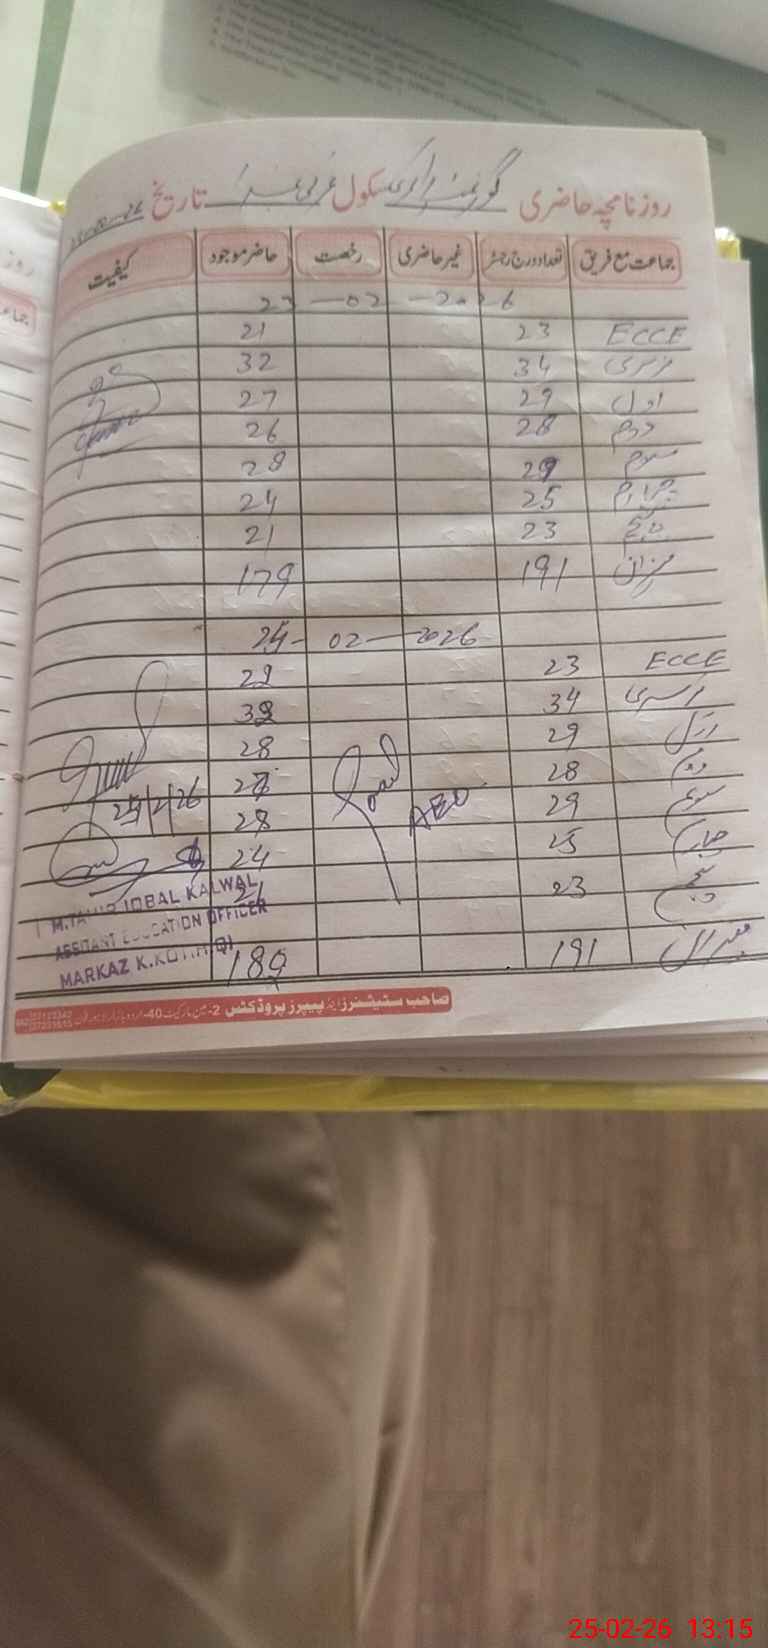 روزنامچہ حاضری گورنمنٹ پرائمری سکول غربی تاریخ
جماعت مع فریق تعداد درج رجسٹر غیر حاضری رخصت حاضر موجود کیفیت
23-02-2026
ECCE 23 21
نرسری 34 32
اول 29 27
دوم 28 26
سوم 29 28
چہارم 25 24
پنجم 23 21
میزان 191 179
24-02-2026
ECCE 23
نرسری 34
اول 29 28
دوم 28
سوم 29 28
چہارم 25 24
پنجم 23 21
میزان 191
AEO
IQBAL KALWAL
ASSITANT EDUCATION OFFICER
MARKAZ
صاحب سٹیشنرز اینڈ پیپرز پروڈکٹس 2-مین مارکیٹ 40-اردو بازار لاہور فون
25-02-26 13:15